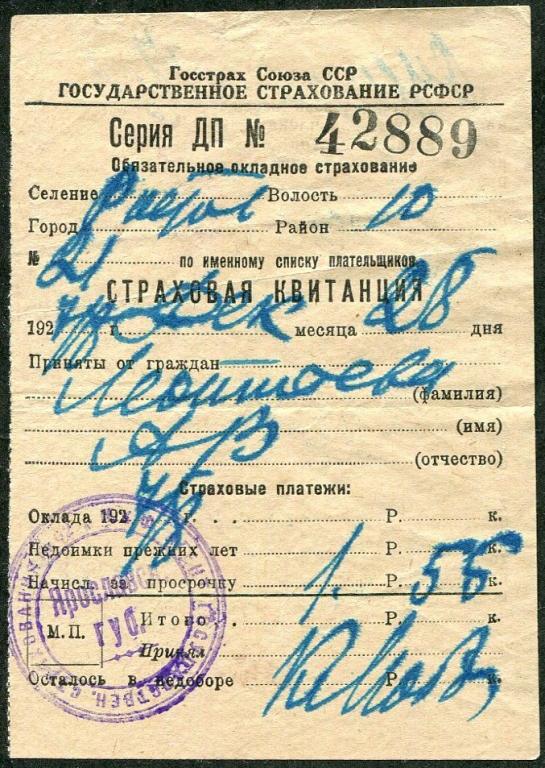 Госстрах Союза ССР
ГОСУДАРСТВЕННОЕ СТРАХОВАНИЕ РСФСР
Серия ДП № 42889
Обязательное окладное страхование
Селение Волость
Город Район 10
№ 21 по именному списку плательщиков
СТРАХОВАЯ КВИТАНЦИЯ
192 г. дек месяца 28 дня
Приняты от граждан
Леонтьева (фамилия)
(имя)
А В (отчество)
Страховые платежи:
Оклада 192 г. . . Р. к.
Недоимки прежних лет Р. к.
Начисл. за просрочку 1. 55
М.П. Итого Р. к.
Принял
Осталось в недоборе Р. к.
Ярославск
ГУБ.